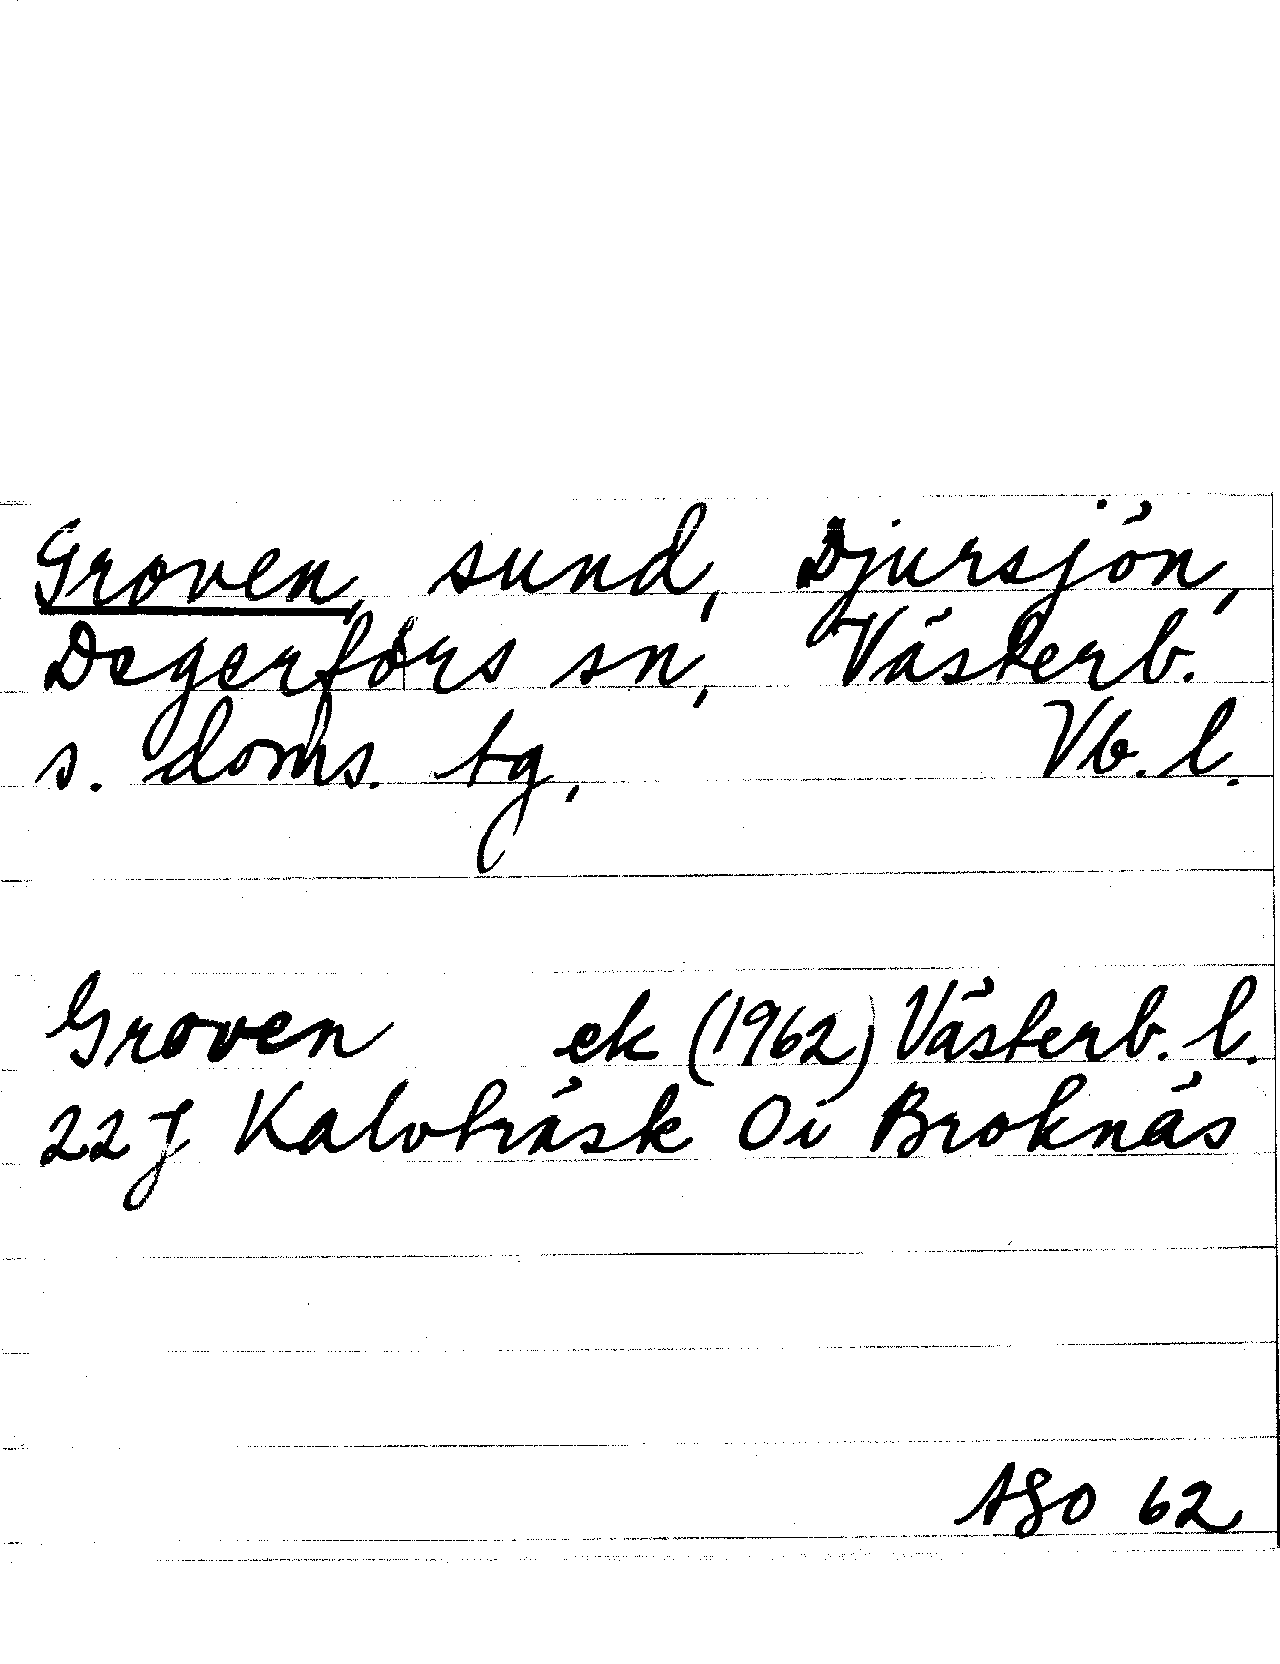 Groven, sund, Djursjön,
Degerfors sn, Västerb.
s. doms. tg, Vb. l.
Groven ek (1962) Västerb. l.
22 J Kalvträsk Oi Broknäs
AGO 62